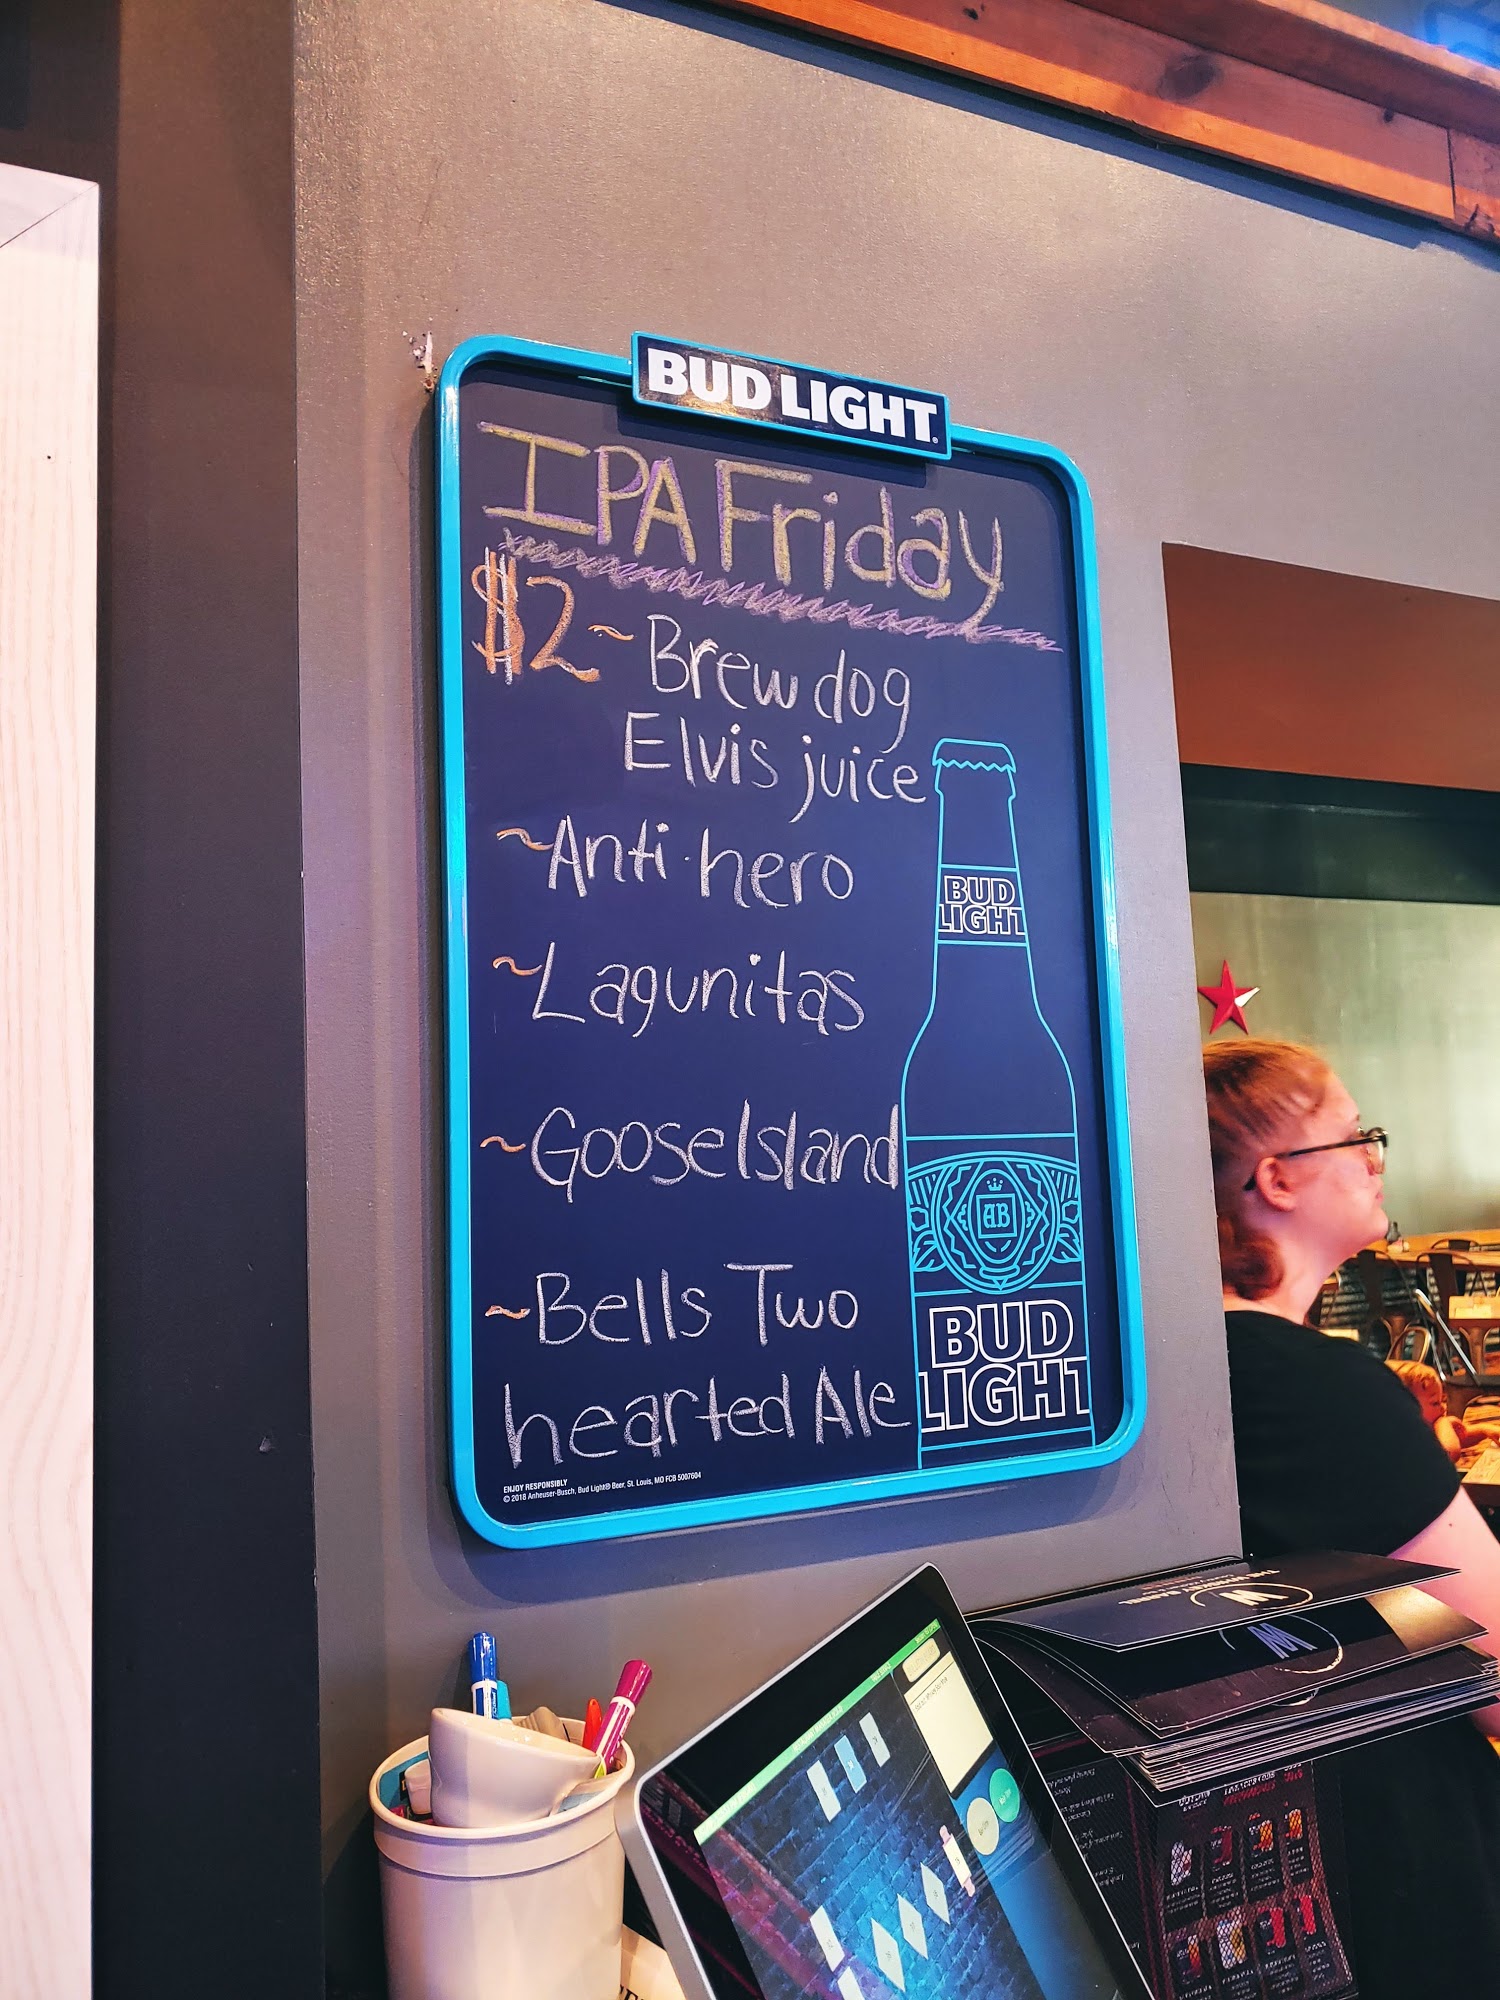 BUD LIGHT
IPA Friday
$2 ~ Brewdog
Elvis juice
~ Anti-hero
~ Lagunitas
~ Goose Island
~ Bells Two
hearted Ale
BUD
LIGHT
AB
BUD
LIGHT
ENJOY RESPONSIBLY
© 2018 Anheuser-Busch, Bud Light® Beer, St. Louis, MO FCB 5007604